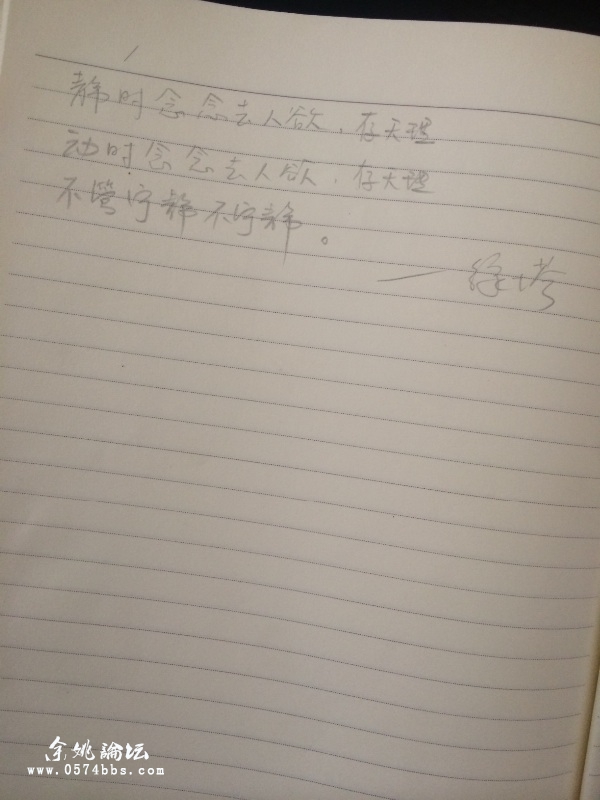 静时念念去人欲、存天理
动时念念去人欲、存天理
不管宁静不宁静。
余姚论坛
www.0574bbs.com